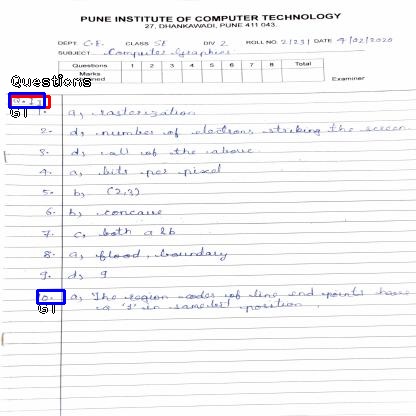 PUNE INSTITUTE OF COMPUTER TECHNOLOGY
27, DHANKAWADI, PUNE 411 043.
DEPT C.E. CLASS SE DIV 2 ROLL NO. 21231 DATE 4/02/2020
SUBJECT Computer Graphics
Questions 1 2 3 4 5 6 7 8 Total
Marks
Examiner
Questions
1. a) rasterization
2. d) number of electrons striking the screen
3. d) all of the above.
4. a) bits per pixel
5. b) (2,3)
6. b) concave
7. c) both a & b
8. a) flood, boundary
9. d) 9
0. a) The region codes of line end points have
a '1' in same bit position.